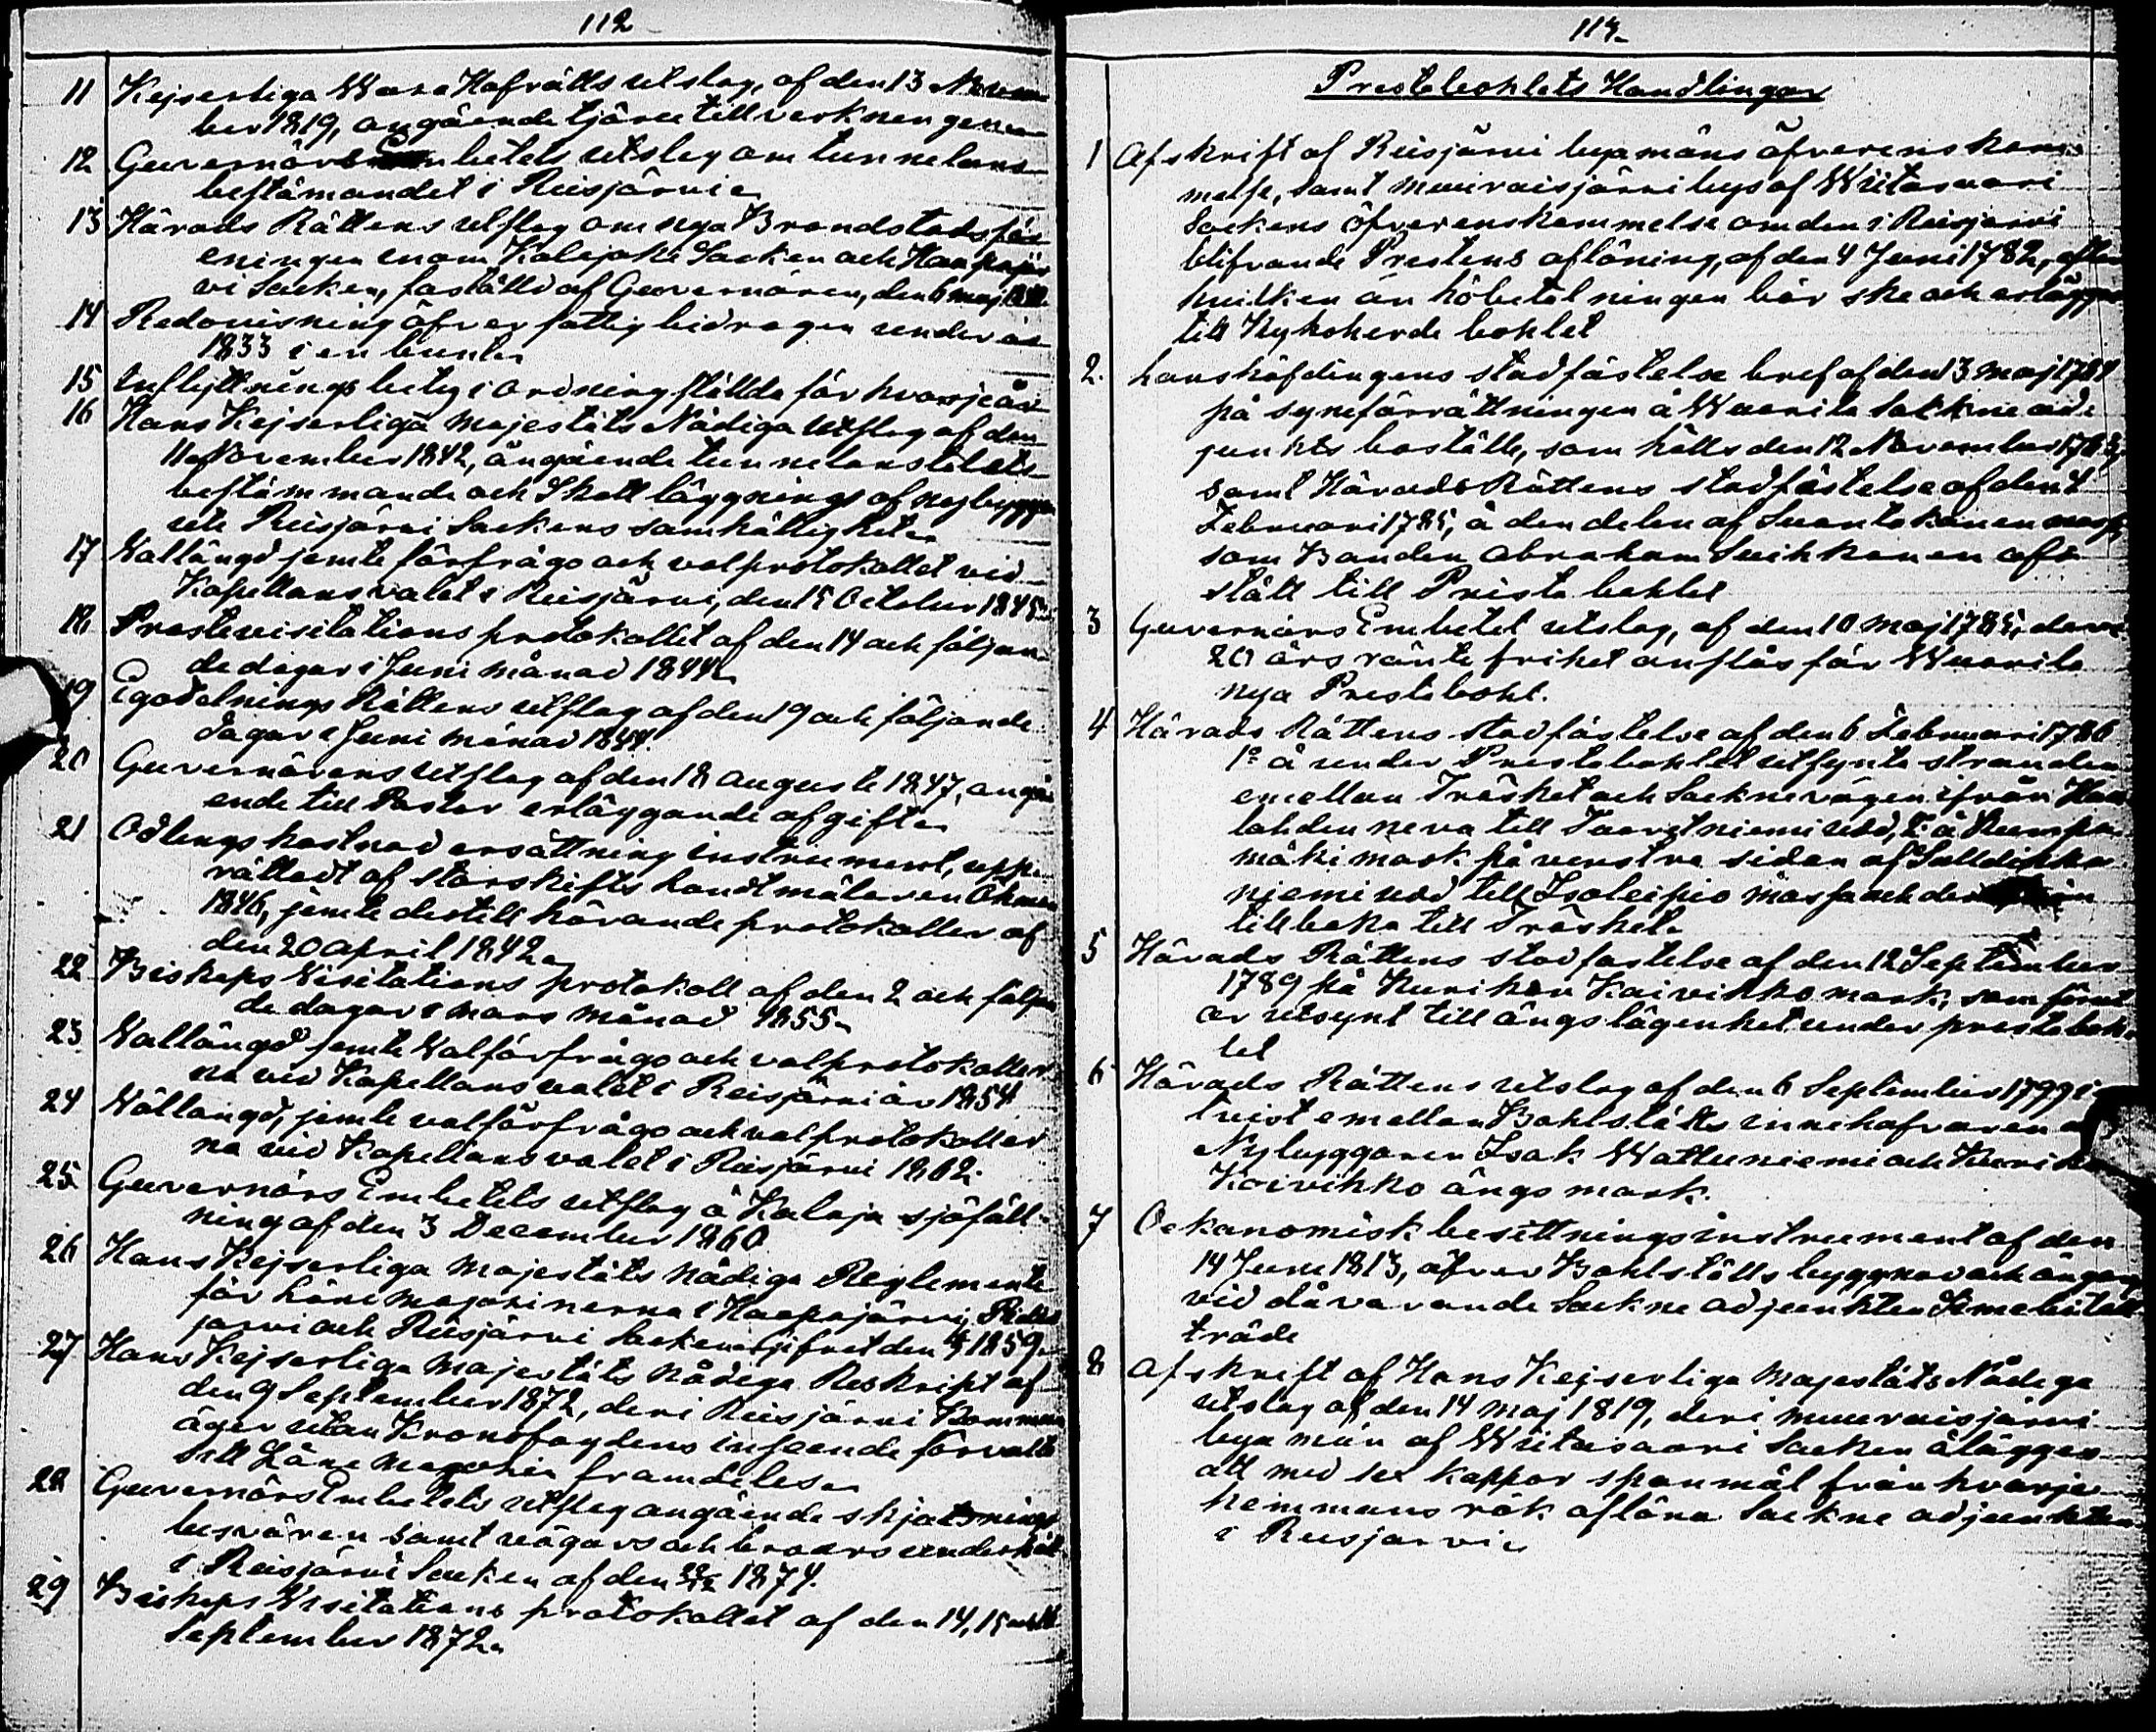 112
11 Kejserliga Wasa Hofrätts utslag, af den 13 Novem-
ber 1819, angående tjäru tillverkningen
12 Guvernörs Embetets utslag om tunnelans
bestämandet i Reisjärvi
13 Härads Rättens utslag om nya Brandstodsför-
eningen inom Kalajoki Socken och Haapajär-
vi Socken, faställd af Guvernören, den 6 maj
14 Redovisning öfver fattig bidragen under år
1833 i en bunt
15 Inflyttnings betyg i ordning stälda för hvarje år
16 Hans Kejserliga Majestäts Nådiga Utslag af den
11 November 1842, angående tunnelanstalets
bestämmande och Skattläggnings af nybyggen
ute Reisjärvi Sockens samhällighet
17 Vallängd jemte förfrågo och valprotokollet vid
Kapellansvalet i Reisjärvi, den 15 October 1845
18 Prostevisitations protokollet af den 14 och följan-
de dagar i Juni månad 1844
19 Egodelnings Rättens utslag af den 19 och följande
dagar i Juni månad 1844
20 Guvernörens utslag af den 18 augusti 1847, angå-
ende till Pastor erläggande afgifter
21 Odlings kostnad ersättning instrument, upp-
rättadt af storskifts landtmätaren Öhman
1846, jemte dertill hörande protokoller af
den 20 april 1842
22 Biskops Visitations protokoll af den 2 och följan-
de dagar i mars månad 1855
23 Vallängd jemte Valförfrågo och valprotokoller
na vid Kapellans valet i Reisjärvi år 1854
24 Vallängd, jemte valförfrågo och valprotokoller
na vid Kapellans valet i Reisjärvi 1862.
25 Guvernörs Embetets utslag å Kalaja sjöfäll-
ning af den 3 December 1860
26 Hans Kejserliga Majestäts nådiga Reglemente
för lånemagasinerna i Haapajärvi,
järvi och Reisjärvi Socknar gifvet den 1859
27 Hans Kejserliga Majestäts nådiga Reskript af
den 9 September 1872, deri Reisjärvi Kommun
äger utan Kronofogdens inseende förvalta
sitt Låne magasin framdeles
28 Guvernörs Embetets utslag angående skjutsnings
besvären samt vägars och broars underhåll
i Reisjärvi Socken af den 1874.
29 Biskops Visitations protokollet af den 14, 15 och 16
September 1872
113
Prestebohlets Handlingar
1 Afskrift af Reisjärvi byamäns öfverenskom-
melse, samt Muuraisjärvi bys af Wiitasaari
Sockens öfverenskommelse om den i Reisjärvi
blifvande Prestens aflöning, af den 4 Juni 1782, efter
hvilken än höbetalningen bör ske och erlägges
till Kykoherde bohlet
2. Landshöfdingens stadfästelse bref af den 13 maj 1784
på syneförrättningen å Wuorila Sockne ad-
junkts boställe, som hölls den 12 November 1783,
samt Härads Rättens stadfästelse af den 1
Februari 1785, å den delen af Suontakanen mossa,
som Bonden Abraham Suihkonen af-
stått till Preste bohlet
3 Guvernörs Embetet utslag, af den 10 maj 1785, derv
20 års räntefrihet anslås för Wuorila
nya Prestebohl.
4 Härads Rättens stadfästelse af den 6 Februari 1786
1º å under Prestebohlet utsynte stranden
emellan Träsket och Socknevägen ifrån
lahden neva till Saaretniemi udd, 2º å Rumpu-
mäki mark på venstra sidan af
niemi udd till Isoleipio mossa och
tillbaka till Träsket
5 Härads Rättens stadfästelse af den 12 September
1789 på Kurikan Koivikko mark, som förut
är utsynt till ängs lägenhet under prestebohl-
let
6 Härads Rättens utslag af den 6 September 1799 i
tvist emellan Bohlställs innehafvaren och
Nybyggaren Isak Wattuniemi och Kurikan
Koivikko ängs mark.
7 Oekonomisk besittningsinstrument af den
14 Juni 1813, öfver Bohlställs byggnad och ängar
vid dåvarande Sockne adjunkten
träde
8 Afskrift af Hans Kejserliga Majestäts Nådiga
Utslag af den 14 maj 1819, deri Muuraisjärvi
byamän af Wiitasaari Socken ålägges
att med sex kappar spanmål från hvarje
hemmans rök aflöna Sockne adjunkten
i Reisjärvi